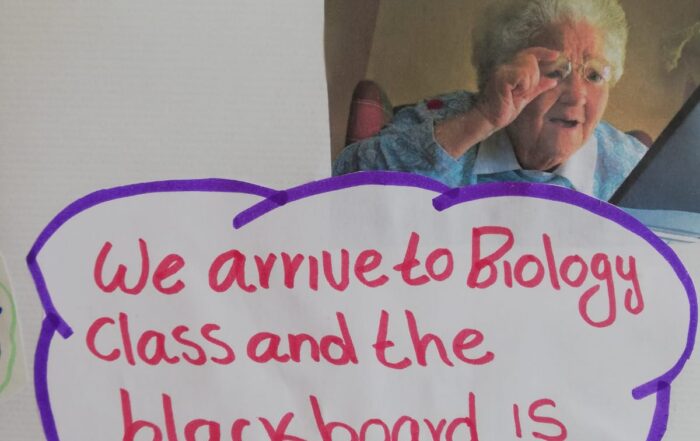 We arrive to Biology
class and the
blackboard is